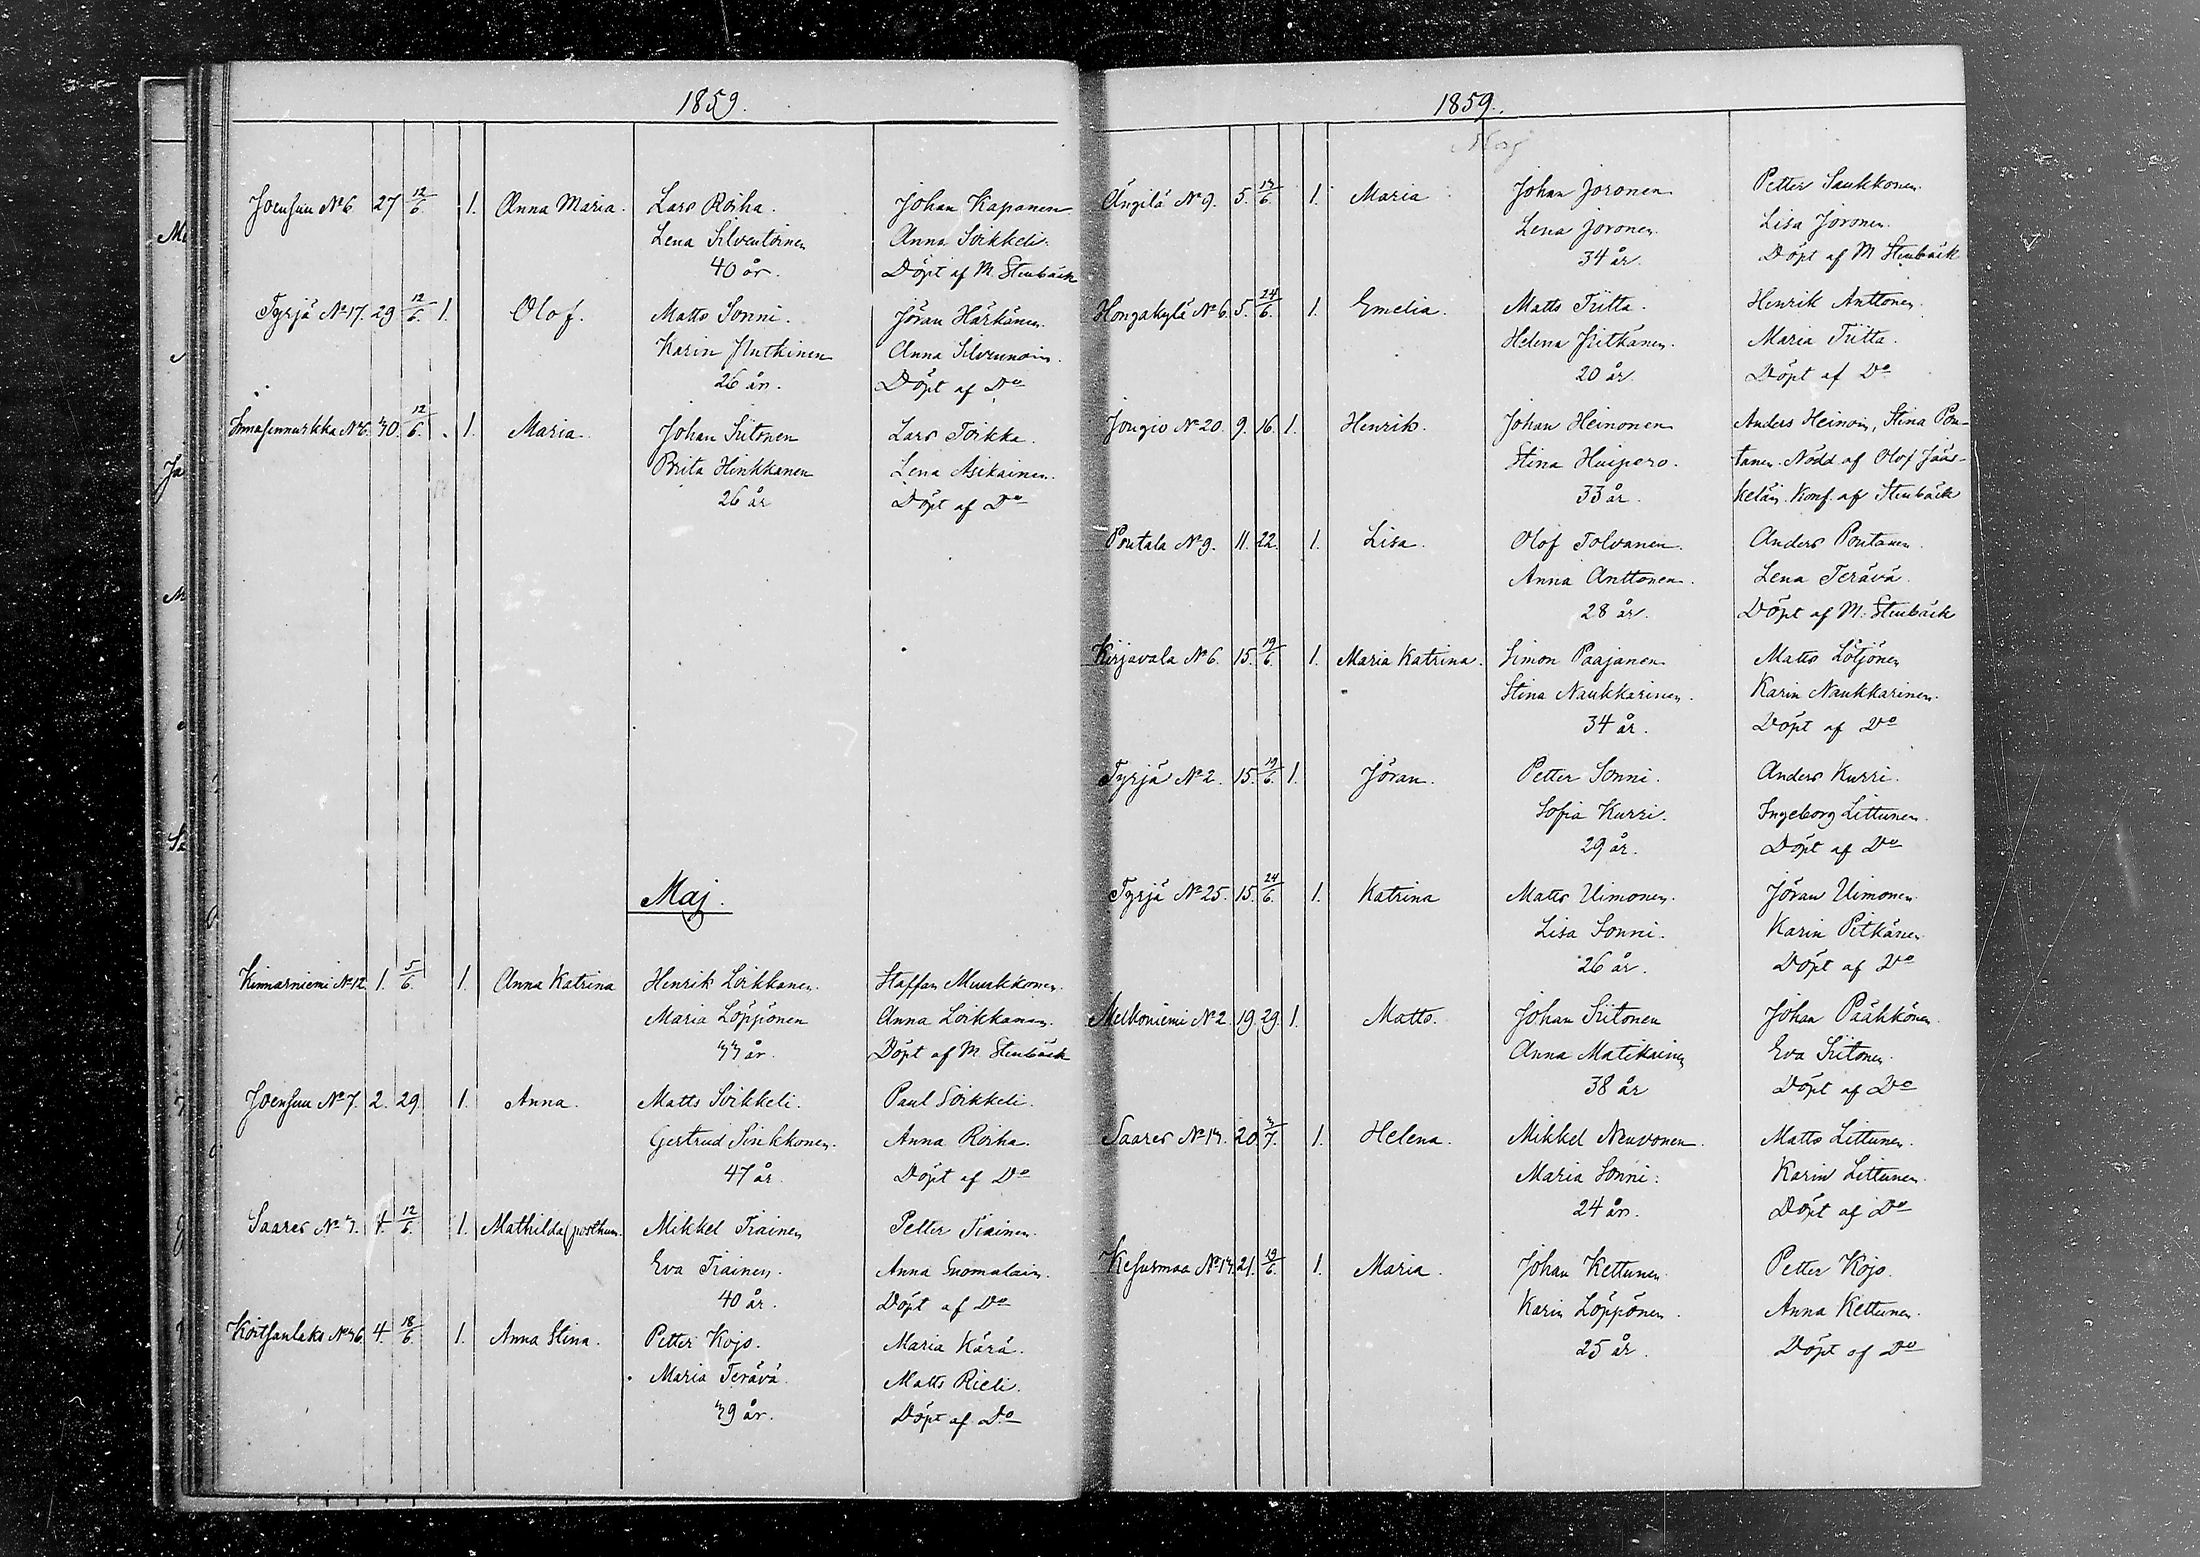 1859.
Joensuu No 6 27 12/6 1. Anna Maria. Lars Roiha. Johan Kaponen
Lena Silventoinen Anna Soikkeli.
40 år. Döpt af M. Stenbäck
Tyrjä No 17. 29 12/6 1. Olof. Matts Sonni. Jöran Härkänen.
Karin Hutkinen Anna Silvennoin.
26 år. Döpt af Do
No 6. 30. 12/6 1. Maria. Johan Siitonen Lars Toikka.
Brita Hinkkanen Lena Asikainen.
26 år Döpt af Do
Maj.
Kinnarniemi No 12 1. 5/6 1. Anna Katrina Henrik Loikkanen. Staffan Muukkonen.
Maria Löppönen Anna Loikkanen.
33 år. Döpt af M. Stenbäck
Joensuu No 7. 2. 29. 1. Anna. Matts Soikkeli. Paul Soikkeli.
Gertrud Sinkkonen. Anna Roiha.
47 år Döpt af Do
Saares No 3. 4. 12/6 1. Mathilda (posthum. Mikkel Tiainen Petter Tiainen.
Eva Tiainen. Anna Suomalain.
40 år. Döpt af Do
Koitsanlaks No 36 4. 18/6 1. Anna Stina. Petter Kojo. Maria Kärä.
Maria Terävä. Matts Rieli.
39 år. Döpt af Do
1859.
Maj
Ängilä No 9. 5. 13/6 1. Maria Johan Joronen Petter Saukkonen.
Lena Joronen. Lisa Joronen.
34 år. Döpt af M Stenbäck
Hongakylä No 6. 5. 24/6 1. Emelia. Matts Tiitta. Henrik Anttonen.
Helena Pitkänen. Maria Tiitta.
20 år. Döpt af Do
Jongio No 20. 9. 16. 1. Henrik. Johan Heinonen Anders Heinoin, Stina Pon-
Stina Huipero. tanen. Nödd. af Olof Jääs-
33 år. keläin. Konf. af Stenbäck
Poutala No 9. 11. 22. 1. Lisa. Olof Tolvanen. Anders Poutanen.
Anna Anttonen. Lena Terävä.
28 år. Döpt af M. Stenbäck
Kirjavala No 6. 15. 19/6 1. Maria Katrina. Simon Paajanen Matts Lötjönen
Stina Naukkarinen. Karin Naukkarinen.
34 år. Döpt af Do
Tyrjä No 2. 15. 19/6 1. Jöran. Petter Sonni. Anders Kurri.
Sofia Kurri. Ingeborg Littunen.
29 år. Döpt af Do
Tyrjä No 25. 15. 24/6 1. Katrina Matts Uimonen. Jöran Uimonen.
Lisa Sonni. Karin Pitkänen
26 år. Döpt af Do
Melkoniemi No 2. 19. 29. 1. Matts. Johan Siitonen Johan Pääkkönen.
Anna Matikainen Eva Siitonen.
38 år Döpt af Do
Saares No 13. 20. 3/7. 1. Helena. Mikkel Neuvonen. Matts Littunen.
Maria Sonni. Karin Littunen.
24 år. Döpt af Do
Kesusmaa No 13. 21. 19/6 1. Maria. Johan Kettunen. Petter Kojo.
Karin Löppönen. Anna Kettunen.
25 år. Döpt af Do